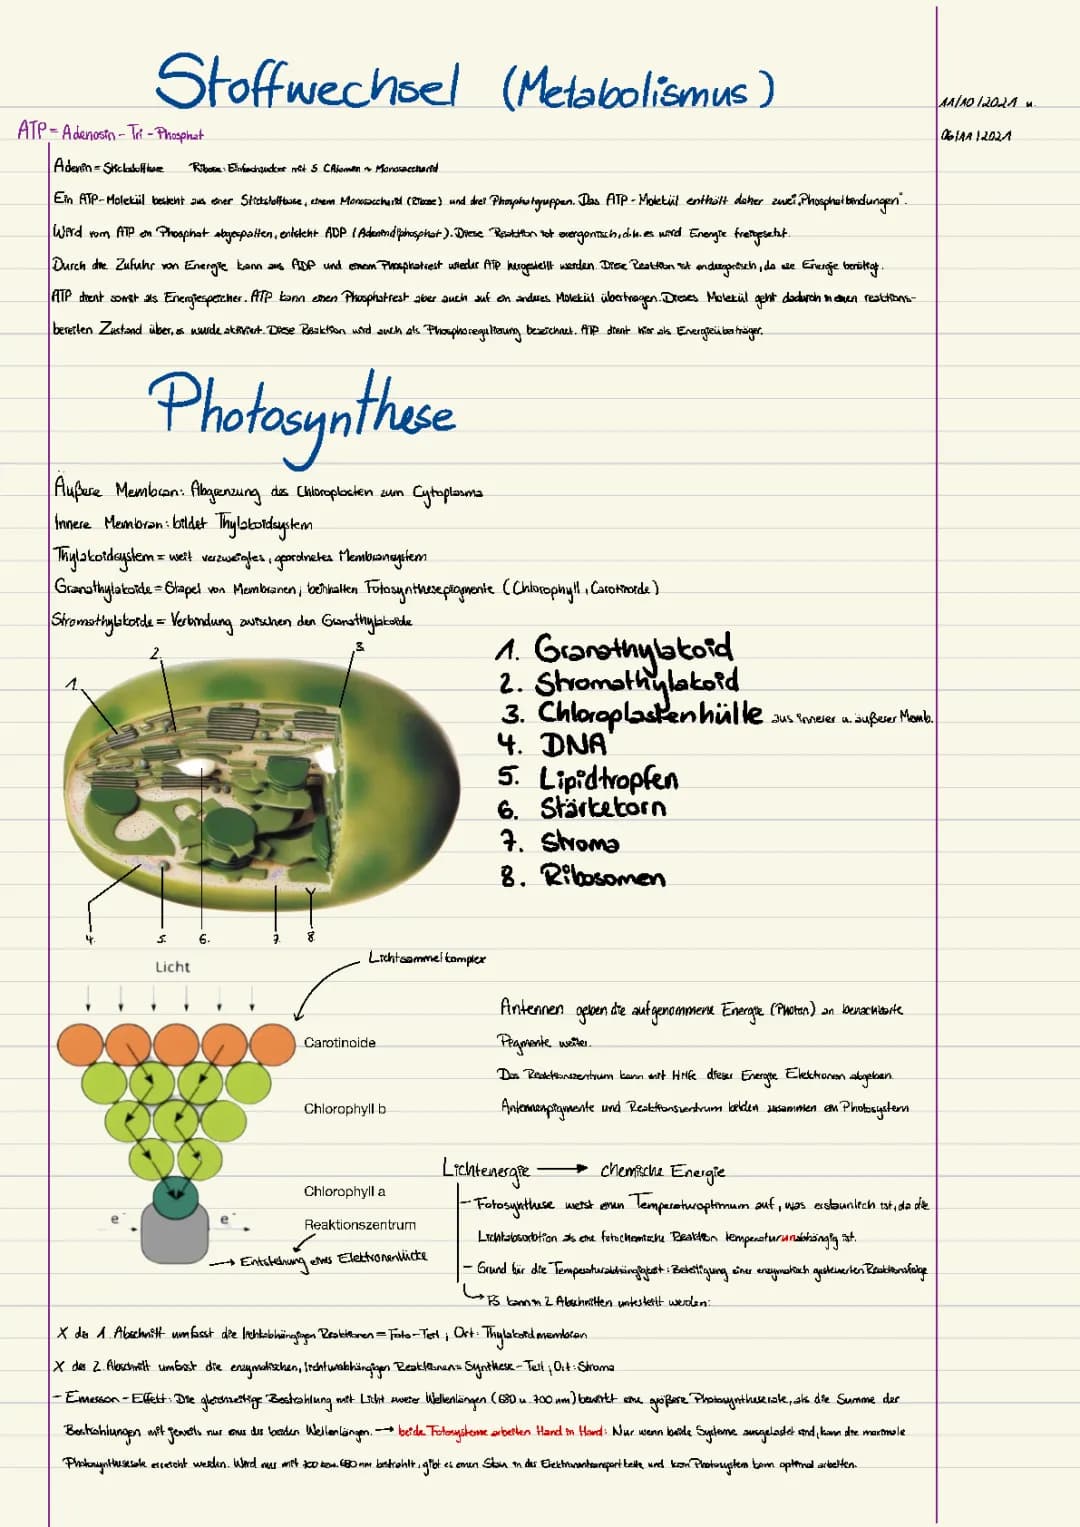 Stoffwechsel (Metabolismus)
11/10/2021 u.
06/11/2021
ATP = Adenosin-Tri-Phosphat
Adenin = Stickstoffbase Ribose: Einfachzucker mit 5 C Atomen Monosaccharid
Ein ATP-Molekül besteht aus einer Stickstoffbase, einem Monosaccharid (Ribose) und drei Phosphatgruppen. Das ATP-Molekül enthält daher zwei „Phosphatbindungen".
Wird vom ATP ein Phosphat abgespalten, entsteht ADP (Adenindiphosphat). Diese Reaktion ist exergonisch, d.h. es wird Energie freigesetzt.
Durch die Zufuhr von Energie kann aus ADP und einem Phosphatrest wieder ATP hergestellt werden. Diese Reaktion ist endergonisch, da sie Energie benötigt.
ATP dient somit als Energiespeicher. ATP kann einen Phosphatrest aber auch auf ein anderes Molekül übertragen. Dieses Molekül geht dadurch in einen reaktions-
bereiten Zustand über, es wurde aktiviert. Diese Reaktion wird auch als Phosphoregulierung bezeichnet. ATP dient hier als Energieüberträger.
Photosynthese
Äußere Membran: Abgrenzung des Chloroplasten zum Cytoplasma
Innere Membran: bildet Thylakoidsystem
Thylakoidsystem = weit verzweigtes, geordnetes Membransystem
Granathylakoide = Stapel von Membranen; beinhalten Fotosynthesepigmente (Chlorophyll, Carotinoide)
Stromathylakoide = Verbindung zwischen den Granathylakoide
1. 2. 3.
1. Granathylakoid
2. Stromathylakoid
3. Chloroplastenhülle aus innerer u. äußerer Memb.
4. DNA
5. Lipidtropfen
6. Stärkekorn
7. Stroma
8. Ribosomen
4. 5. 6. 7. 8.
Lichtsammelkomplex
Licht
Carotinoide
Chlorophyll b
Chlorophyll a
Reaktionszentrum
e⁻ e⁻
→ Entstehung eines Elektronenlücke
Antennen geben die aufgenommene Energie (Photon) an benachbarte
Pigmente weiter.
Das Reaktionszentrum kann mit Hilfe dieser Energie Elektronen abgeben.
Antennenpigmente und Reaktionszentrum bilden zusammen ein Photosystem
Lichtenergie → chemische Energie
- Fotosynthese weist einen Temperaturoptimum auf, was erstaunlich ist, da die
Lichtabsorbtion als eine fotochemische Reaktion temperaturunabhängig ist.
- Grund für die Temperaturabhängigkeit: Beteiligung einer enzymatisch gesteuerten Reaktionsfolge
↳ PS kann in 2 Abschnitten unterteilt werden:
X der 1. Abschnitt umfasst die lichtabhängigen Reaktionen = Foto-Teil; Ort: Thylakoidmembran
X der 2. Abschnitt umfasst die enzymatischen, lichtunabhängigen Reaktionen = Synthese-Teil; Ort: Stroma
- Emerson-Effekt: Die gleichzeitige Bestrahlung mit Licht zweier Wellenlängen (680 u. 700 nm) bewirkt eine größere Photosyntheserate, als die Summe der
Bestrahlungen mit jeweils nur eins der beiden Wellenlängen. → beide Fotosysteme arbeiten Hand in Hand: Nur wenn beide Systeme ausgelastet sind, kann die maximale
Photosyntheserate erreicht werden. Wird nur mit 700 bzw. 680 nm bestrahlt, gibt es einen Stau in der Elektronentransportkette und kein Photosystem kann optimal arbeiten.